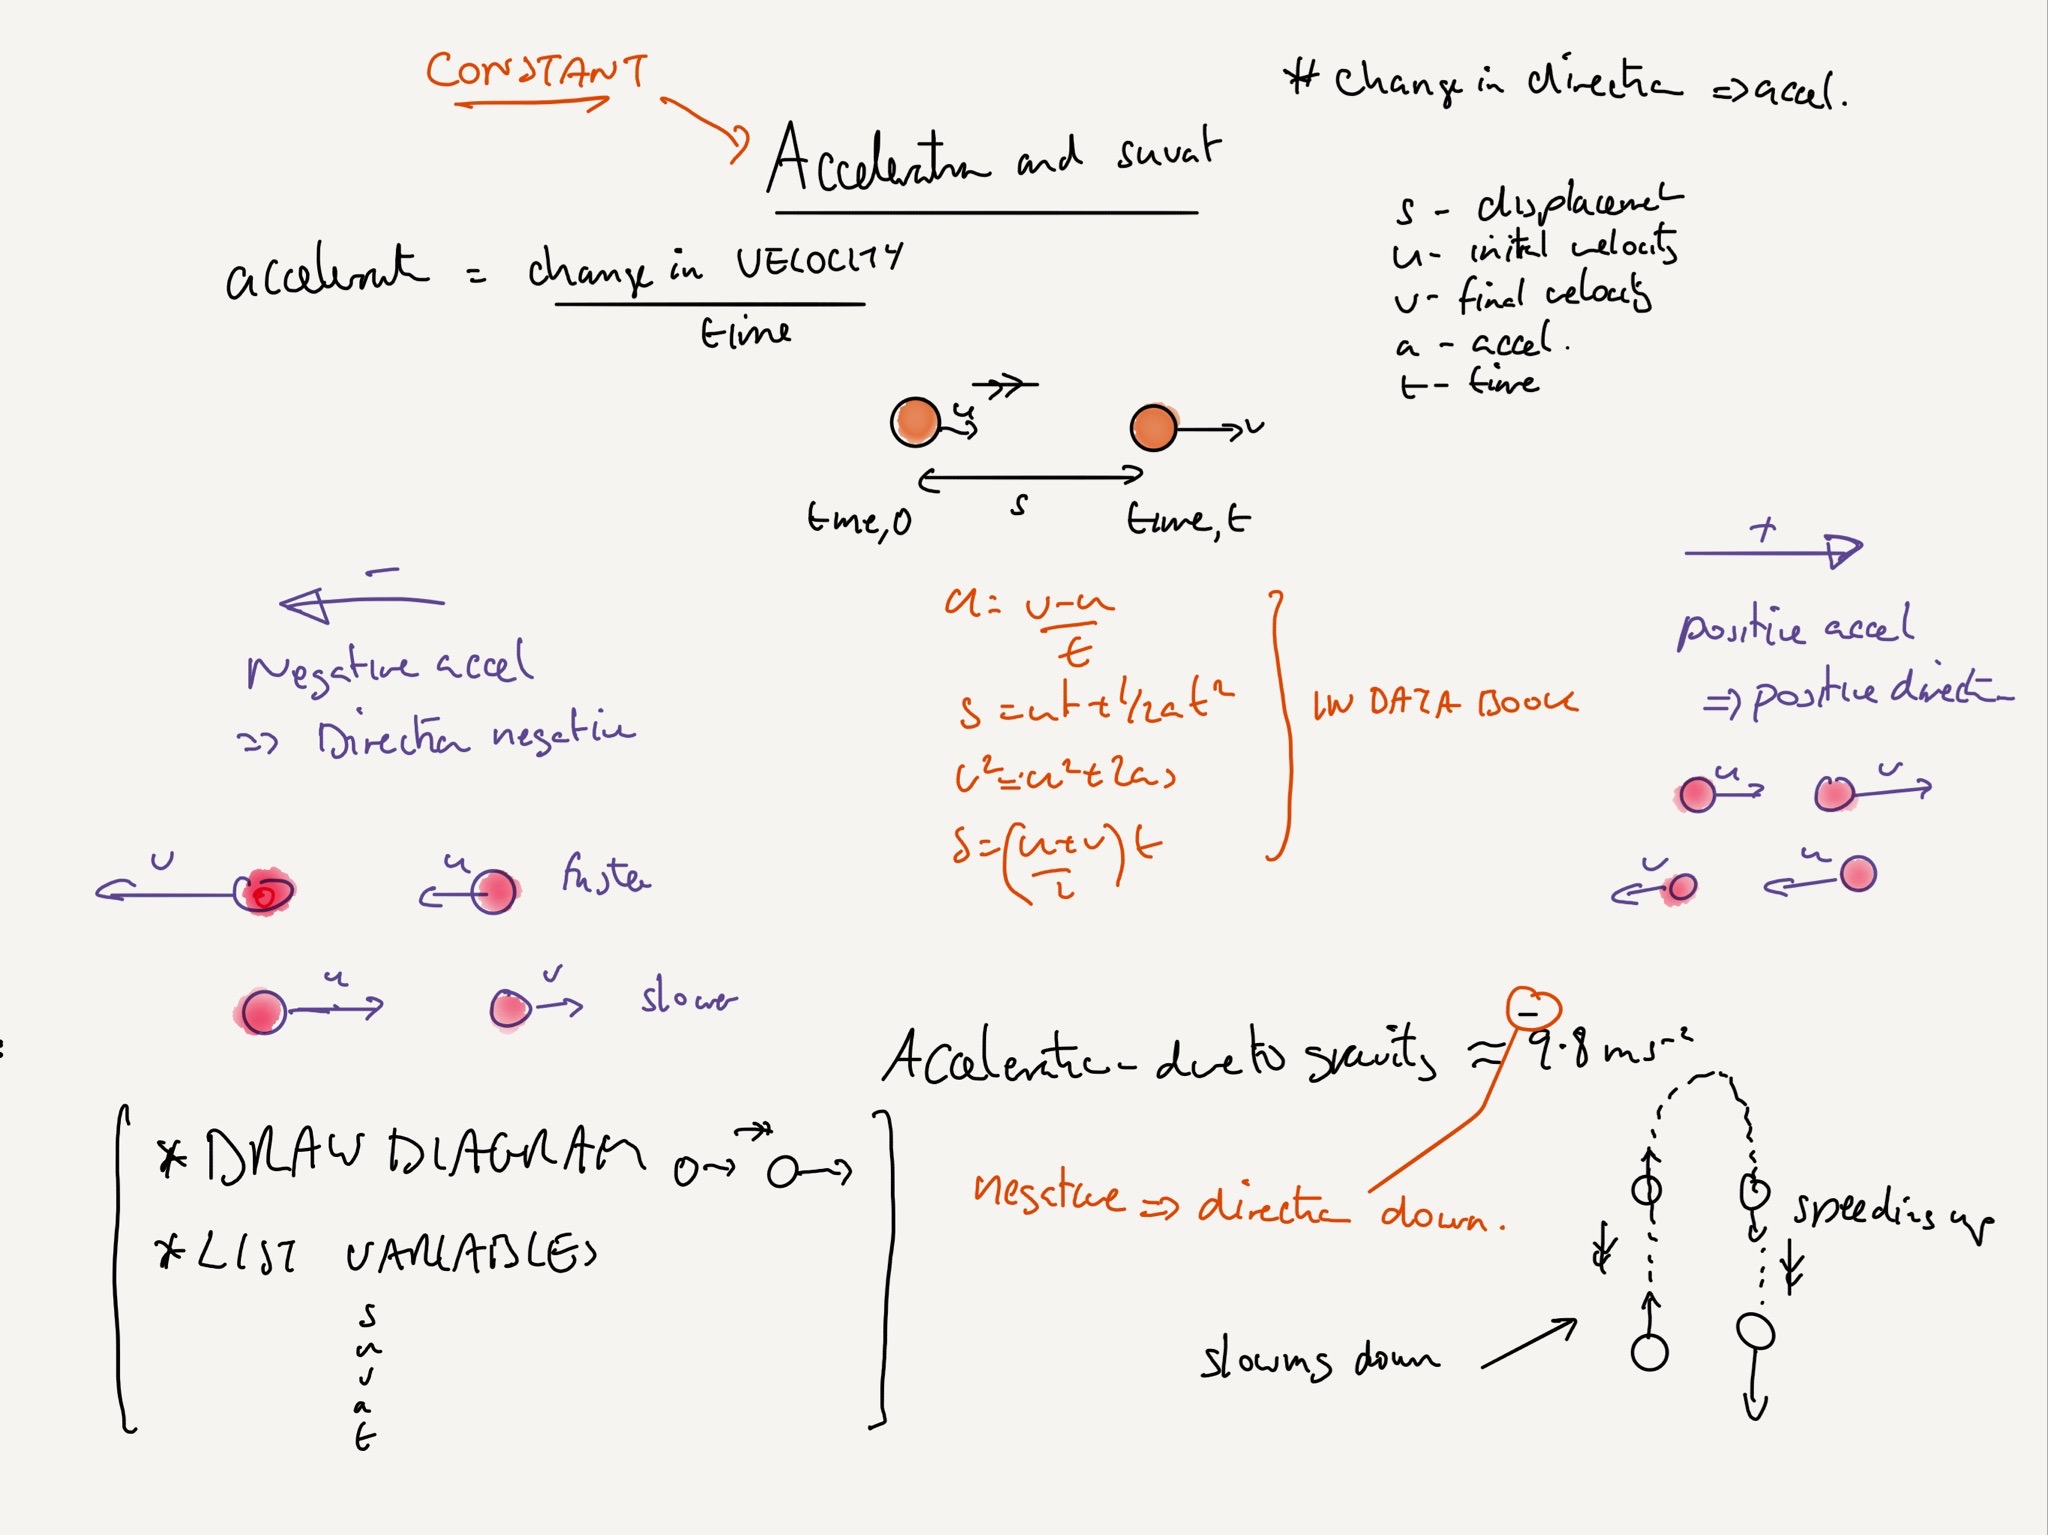 CONSTANT
* change in direction => accel.
Acceleration and suvat
s - displacement
u - initial velocity
v - final velocity
a - accel.
t - time
accelerat = change in VELOCITY
time
u
v
s
time, 0
time, t
-
Negative accel
=> Direction negative
v
u
faster
u
v
slower
a = v-u
t
s = ut + 1/2 a t²
v² = u² + 2as
s = (u+v) t
2
IN DATA BOOK
+
positive accel
=> positive direction
u
v
v
u
Acceleration due to gravity ≈ -9.8 ms⁻²
negative => direction down.
speeding up
slowing down
* DRAW DIAGRAM
* LIST VARIABLES
s
u
v
a
t